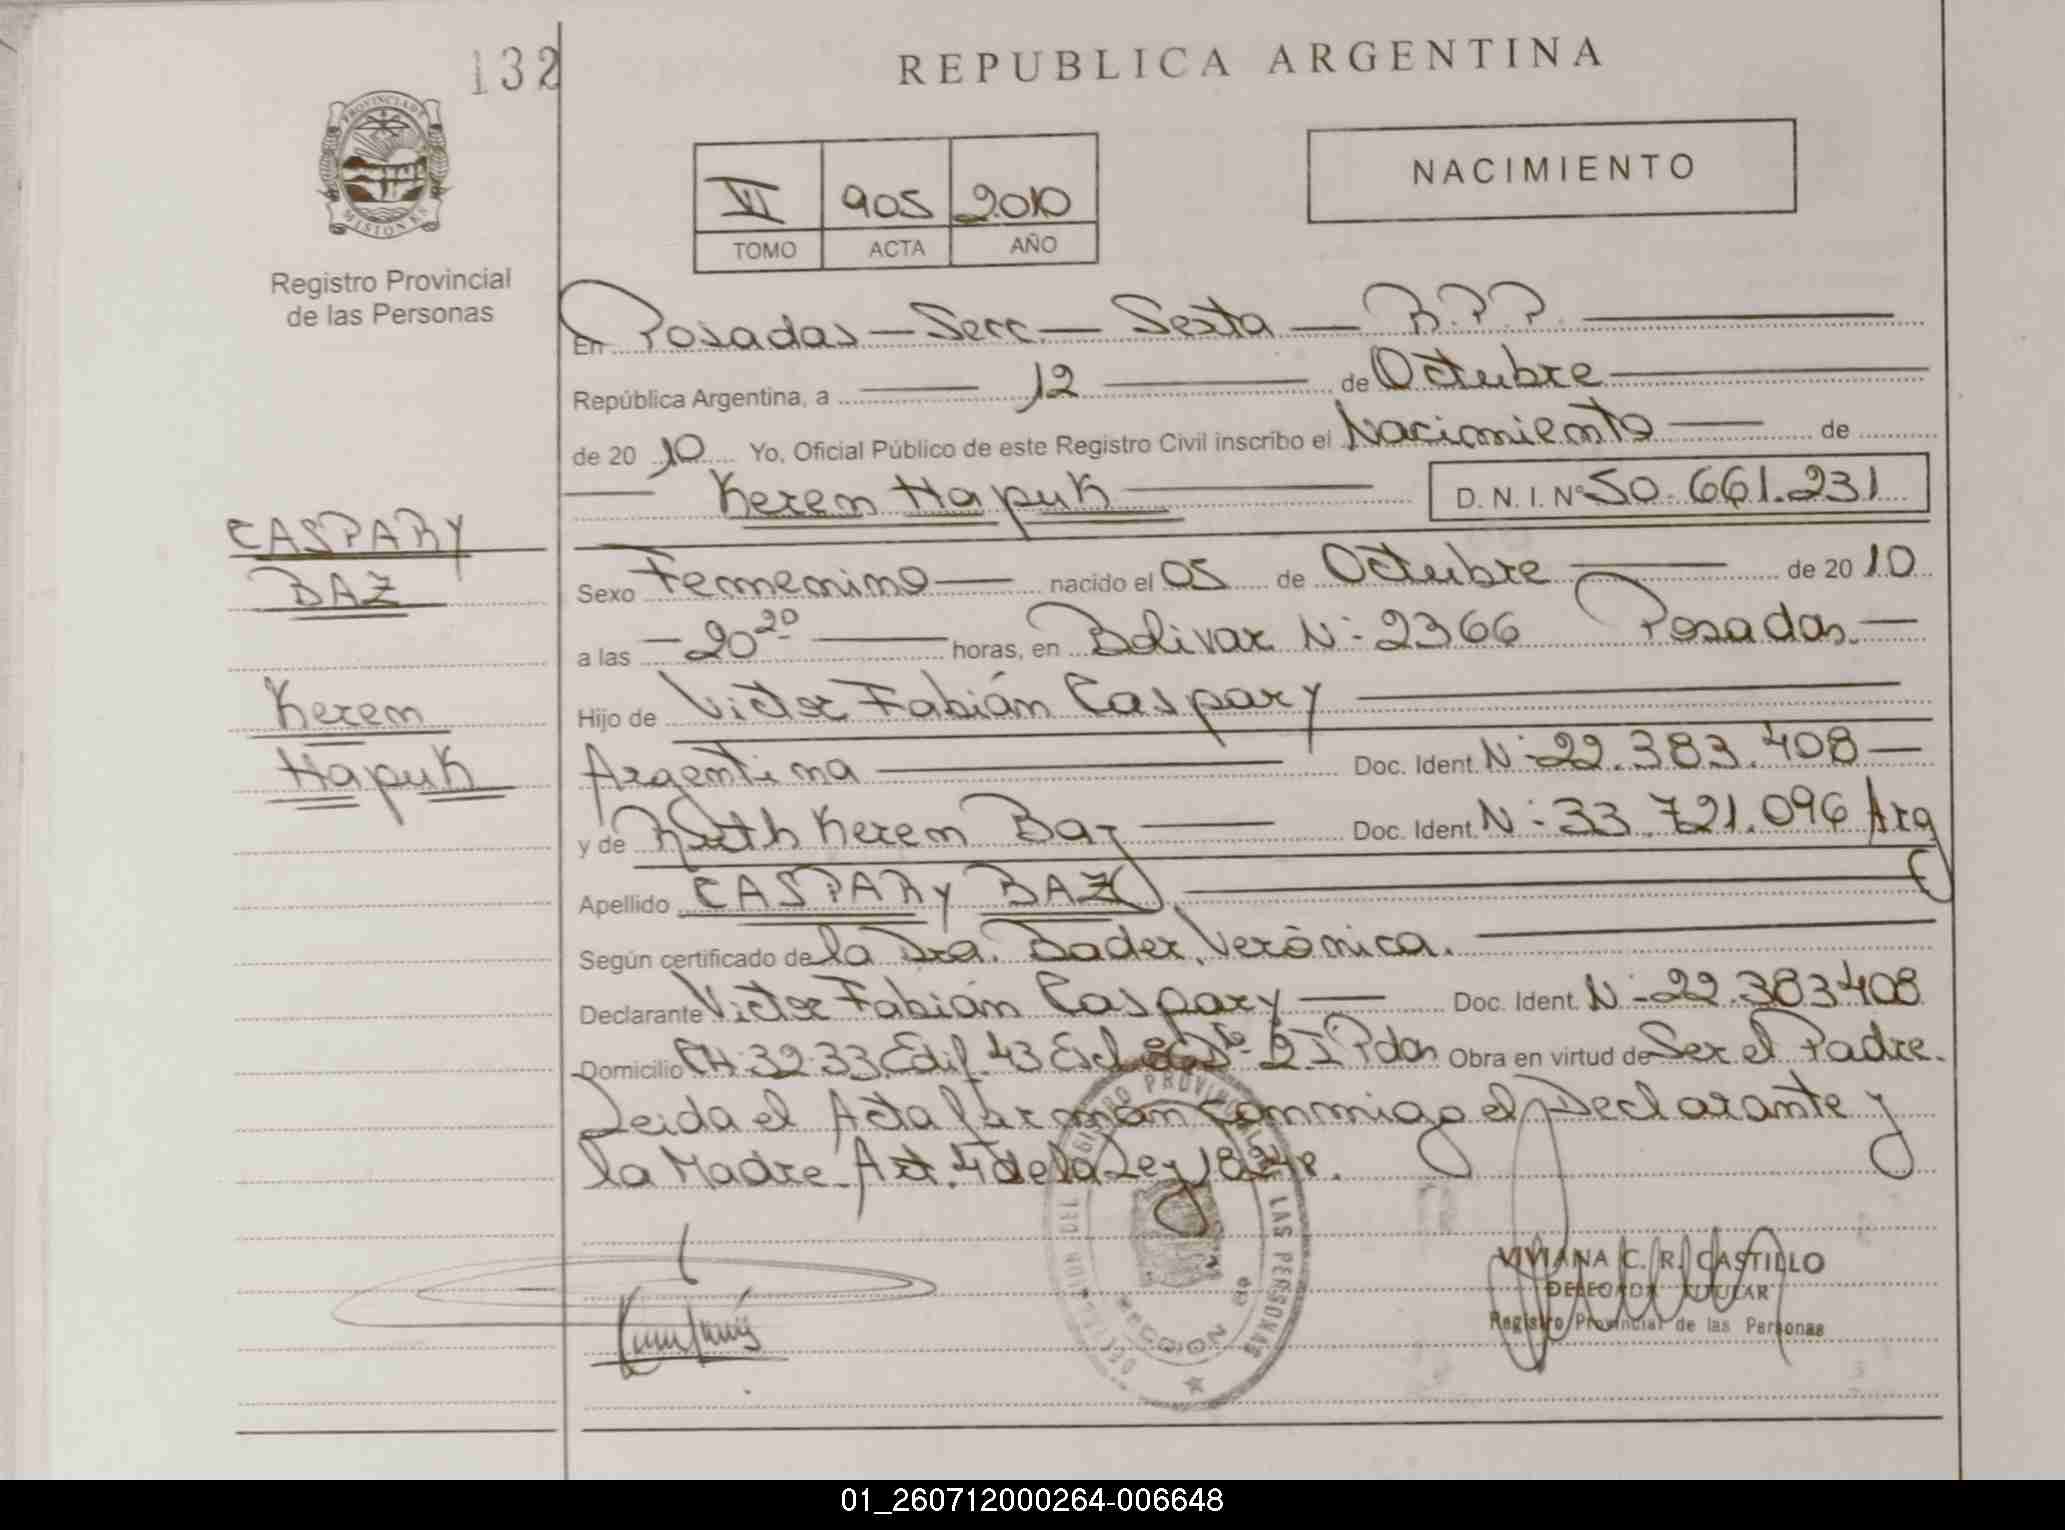 132
REPUBLICA ARGENTINA
PROVINCIA DE MISIONES
Registro Provincial
de las Personas
VI 905 2010
TOMO ACTA AÑO
NACIMIENTO
En Posadas - Secc. - Sexta - R.P.P.
República Argentina, a 12 de Octubre
de 2010 Yo, Oficial Público de este Registro Civil inscribo el Nacimiento de
Keren Hapuk D. N. I. Nº 50.661.231
CASPARY
BAZ
Keren
Hapuk
Sexo Femenino nacido el 05 de Octubre de 2010
a las 20 20 horas, en Bolivar Nº 2366 Posadas.
Hijo de Victor Fabián Caspary
Argentina Doc. Ident. Nº 22.383.408
y de Ruth Keren Baz Doc. Ident. Nº 33.721.096 Arg
Apellido CASPARY BAZ
Según certificado de la Dra. Bader, Verónica.
Declarante Victor Fabián Caspary Doc. Ident. Nº 22.383408
Domicilio CH: 32-33 Edif. 43 Pdas Obra en virtud de Ser el Padre.
Leida el Acta firman conmigo el Declarante y
la Madre. Art. 4 de la Ley 18248.
VIVIANA C. R. CASTILLO
DELEGADA TITULAR
Registro Provincial de las Personas
DEL REGISTRO PROVINCIAL DE LAS PERSONAS
SECCION 6ta
01_260712000264-006648